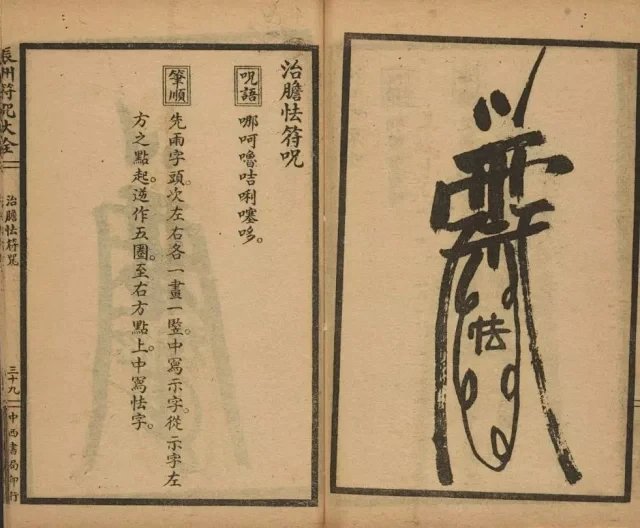 治膽怯符咒
咒語
哪呵嚕咭唎囌哆。
筆順
先雨字頭。次左右各一畫一竪。中寫示字。從示字左
方之點起。逆作五圈。至右方點上。中寫怯字。
辰州符咒大全
治膽怯符咒
三十九
中西書局印行
怯